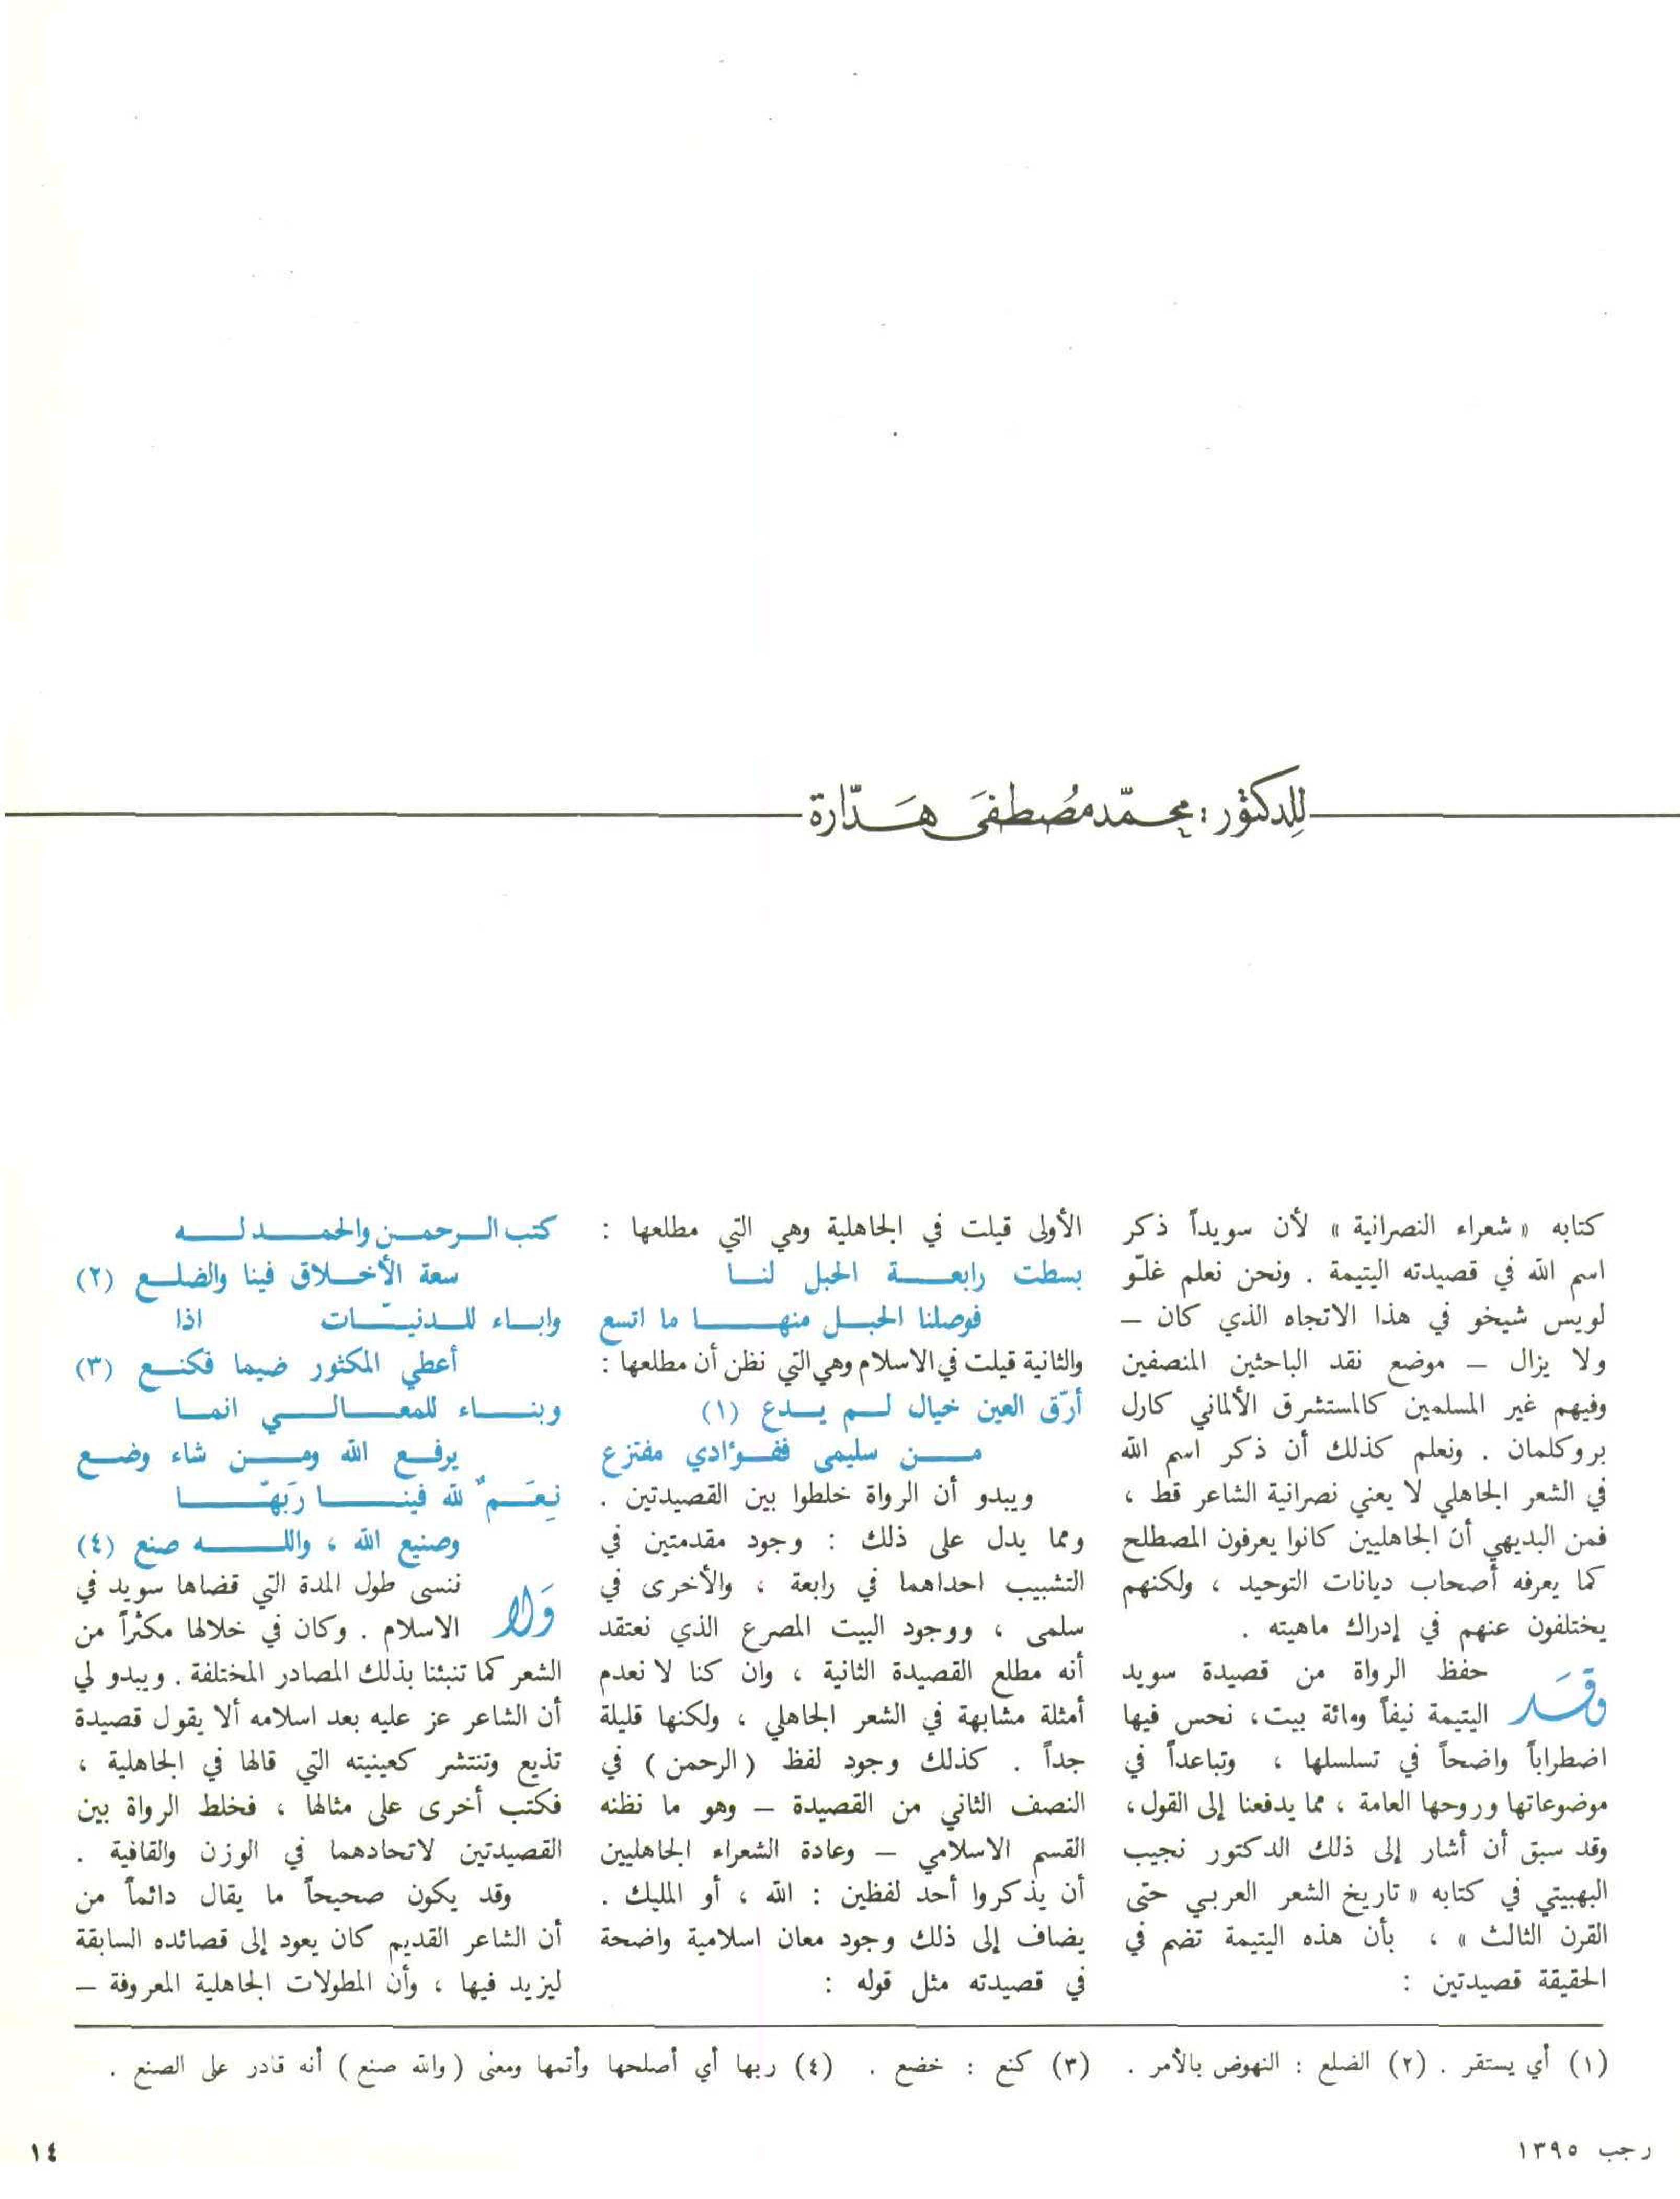 للدكتور : محمّد مصُطفىَ هَدّارة
كتابه « شعراء النصرانية » لأن سويداً ذكر
اسم الله في قصيدته اليتيمة . ونحن نعلم غلـّو
لويس شيخو في هذا الاتجاه الذي كان –
ولا يزال – موضع نقد الباحثين المنصفين
وفيهم غير المسلمين كالمستشرق الألماني كارل
بروكلمان . ونعلم كذلك أن ذكر اسم الله
في الشعر الجاهلي لا يعني نصرانية الشاعر قط ،
فمن البديهي أن الجاهليين كانوا يعرفون المصطلح
كما يعرفه أصحاب ديانات التوحيد ، ولكنهم
يختلفون عنهم في إدراك ماهيته .
وقَد حفظ الرواة من قصيدة سويد
اليتيمة نيفاً ومائة بيت، نحس فيها
اضطراباً واضحاً في تسلسلها ، وتباعداً في
موضوعاتها وروحها العامة ، مما يدفعنا إلى القول،
وقد سبق أن أشار إلى ذلك الدكتور نجيب
البهبيتي في كتابه « تاريخ الشعر العربي حتى
القرن الثالث » ، بأن هذه اليتيمة تضم في
الحقيقة قصيدتين :
الأولى قيلت في الجاهلية وهي التي مطلعها :
بسطت رابعـــة الحبل لنـــا
فوصلنا الحبـــل منهـــا ما اتسع
والثانية قيلت في الاسلام وهي التي نظن أن مطلعها :
أرّق العين خيال لـــم يـــدع (١)
مـــن سليمى ففـــؤادي مفتزع
ويبدو أن الرواة خلطوا بين القصيدتين .
ومما يدل على ذلك : وجود مقدمتين في
التشبيب احداهما في رابعة ، والأخرى في
سلمى ، ووجود البيت المصرع الذي نعتقد
أنه مطلع القصيدة الثانية ، وان كنا لا نعدم
أمثلة مشابهة في الشعر الجاهلي ، ولكنها قليلة
جداً . كذلك وجود لفظ ( الرحمن ) في
النصف الثاني من القصيدة – وهو ما نظنه
القسم الاسلامي – وعادة الشعراء الجاهليين
أن يذكروا أحد لفظين : الله ، أو المليك .
يضاف إلى ذلك وجود معان اسلامية واضحة
في قصيدته مثل قوله :
كتب الـــرحمـــن والحمـــد لـــه
سعة الأخـــلاق فينا والضلـــع (٢)
وابـــاء للـــدنيـــّات اذا
أعطي المكثور ضيما فكنـــع (٣)
وبنـــاء للمعـــالـــي انمـــا
يرفـــع الله ومـــن شاء وضـــع
نِعَـــمٌ لله فينـــا رَبَهـّـــا
وصنيع الله ، واللـــه صنع (٤)
وَلا ننسى طول المدة التي قضاها سويد في
الاسلام . وكان في خلالها مكثراً من
الشعر كما تنبئنا بذلك المصادر المختلفة . ويبدو لي
أن الشاعر عز عليه بعد اسلامه ألا يقول قصيدة
تذيع وتنتشر كعينيته التي قالها في الجاهلية ،
فكتب أخرى على مثالها ، فخلط الرواة بين
القصيدتين لاتحادهما في الوزن والقافية .
وقد يكون صحيحاً ما يقال دائماً من
أن الشاعر القديم كان يعود إلى قصائده السابقة
ليزيد فيها ، وأن المطولات الجاهلية المعروفة –
(١) أي يستقر . (٢) الضلع : النهوض بالأمر . (٣) كنع : خضع . (٤) ربها أي أصلحها وأتمها ومعنى ( والله صنع ) أنه قادر على الصنع .
رجب ١٣٩٥
١٤